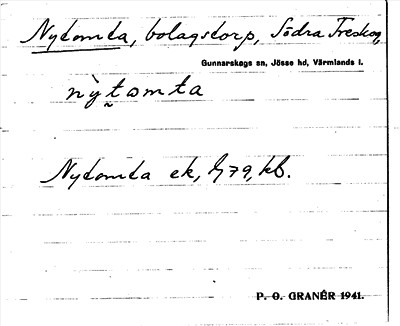 Nytomta, bolagstorp, Södra Treskog,
Gunnarskogs sn, Jösse hd, Värmlands l.
nỳtomta
Nytomta ek, 79, kb.
P. O. GRANÉR 1941.